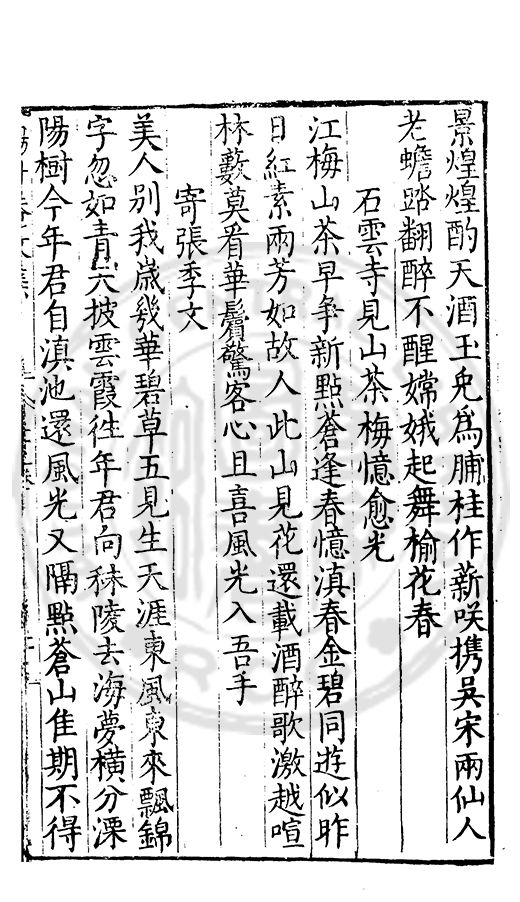 景煌煌酌天酒玉兎為脯桂作薪咲携吳宋兩仙人
老蟾踏翻醉不醒嫦娥起舞榆花春
石雲寺見山茶梅憶愈光
江梅山茶早爭新點蒼逢春憶滇春金碧同遊似昨
日紅素兩芳如故人此山見花還載酒醉歌激越喧
林藪莫看華鬢驚客心且喜風光入吾手
寄張季文
美人別我歲幾華碧草五見生天涯東風東來飄錦
字忽如青天披雲霞往年君向秣陵去海夢橫分溧
陽樹今年君自滇池還風光又隔點蒼山佳期不得